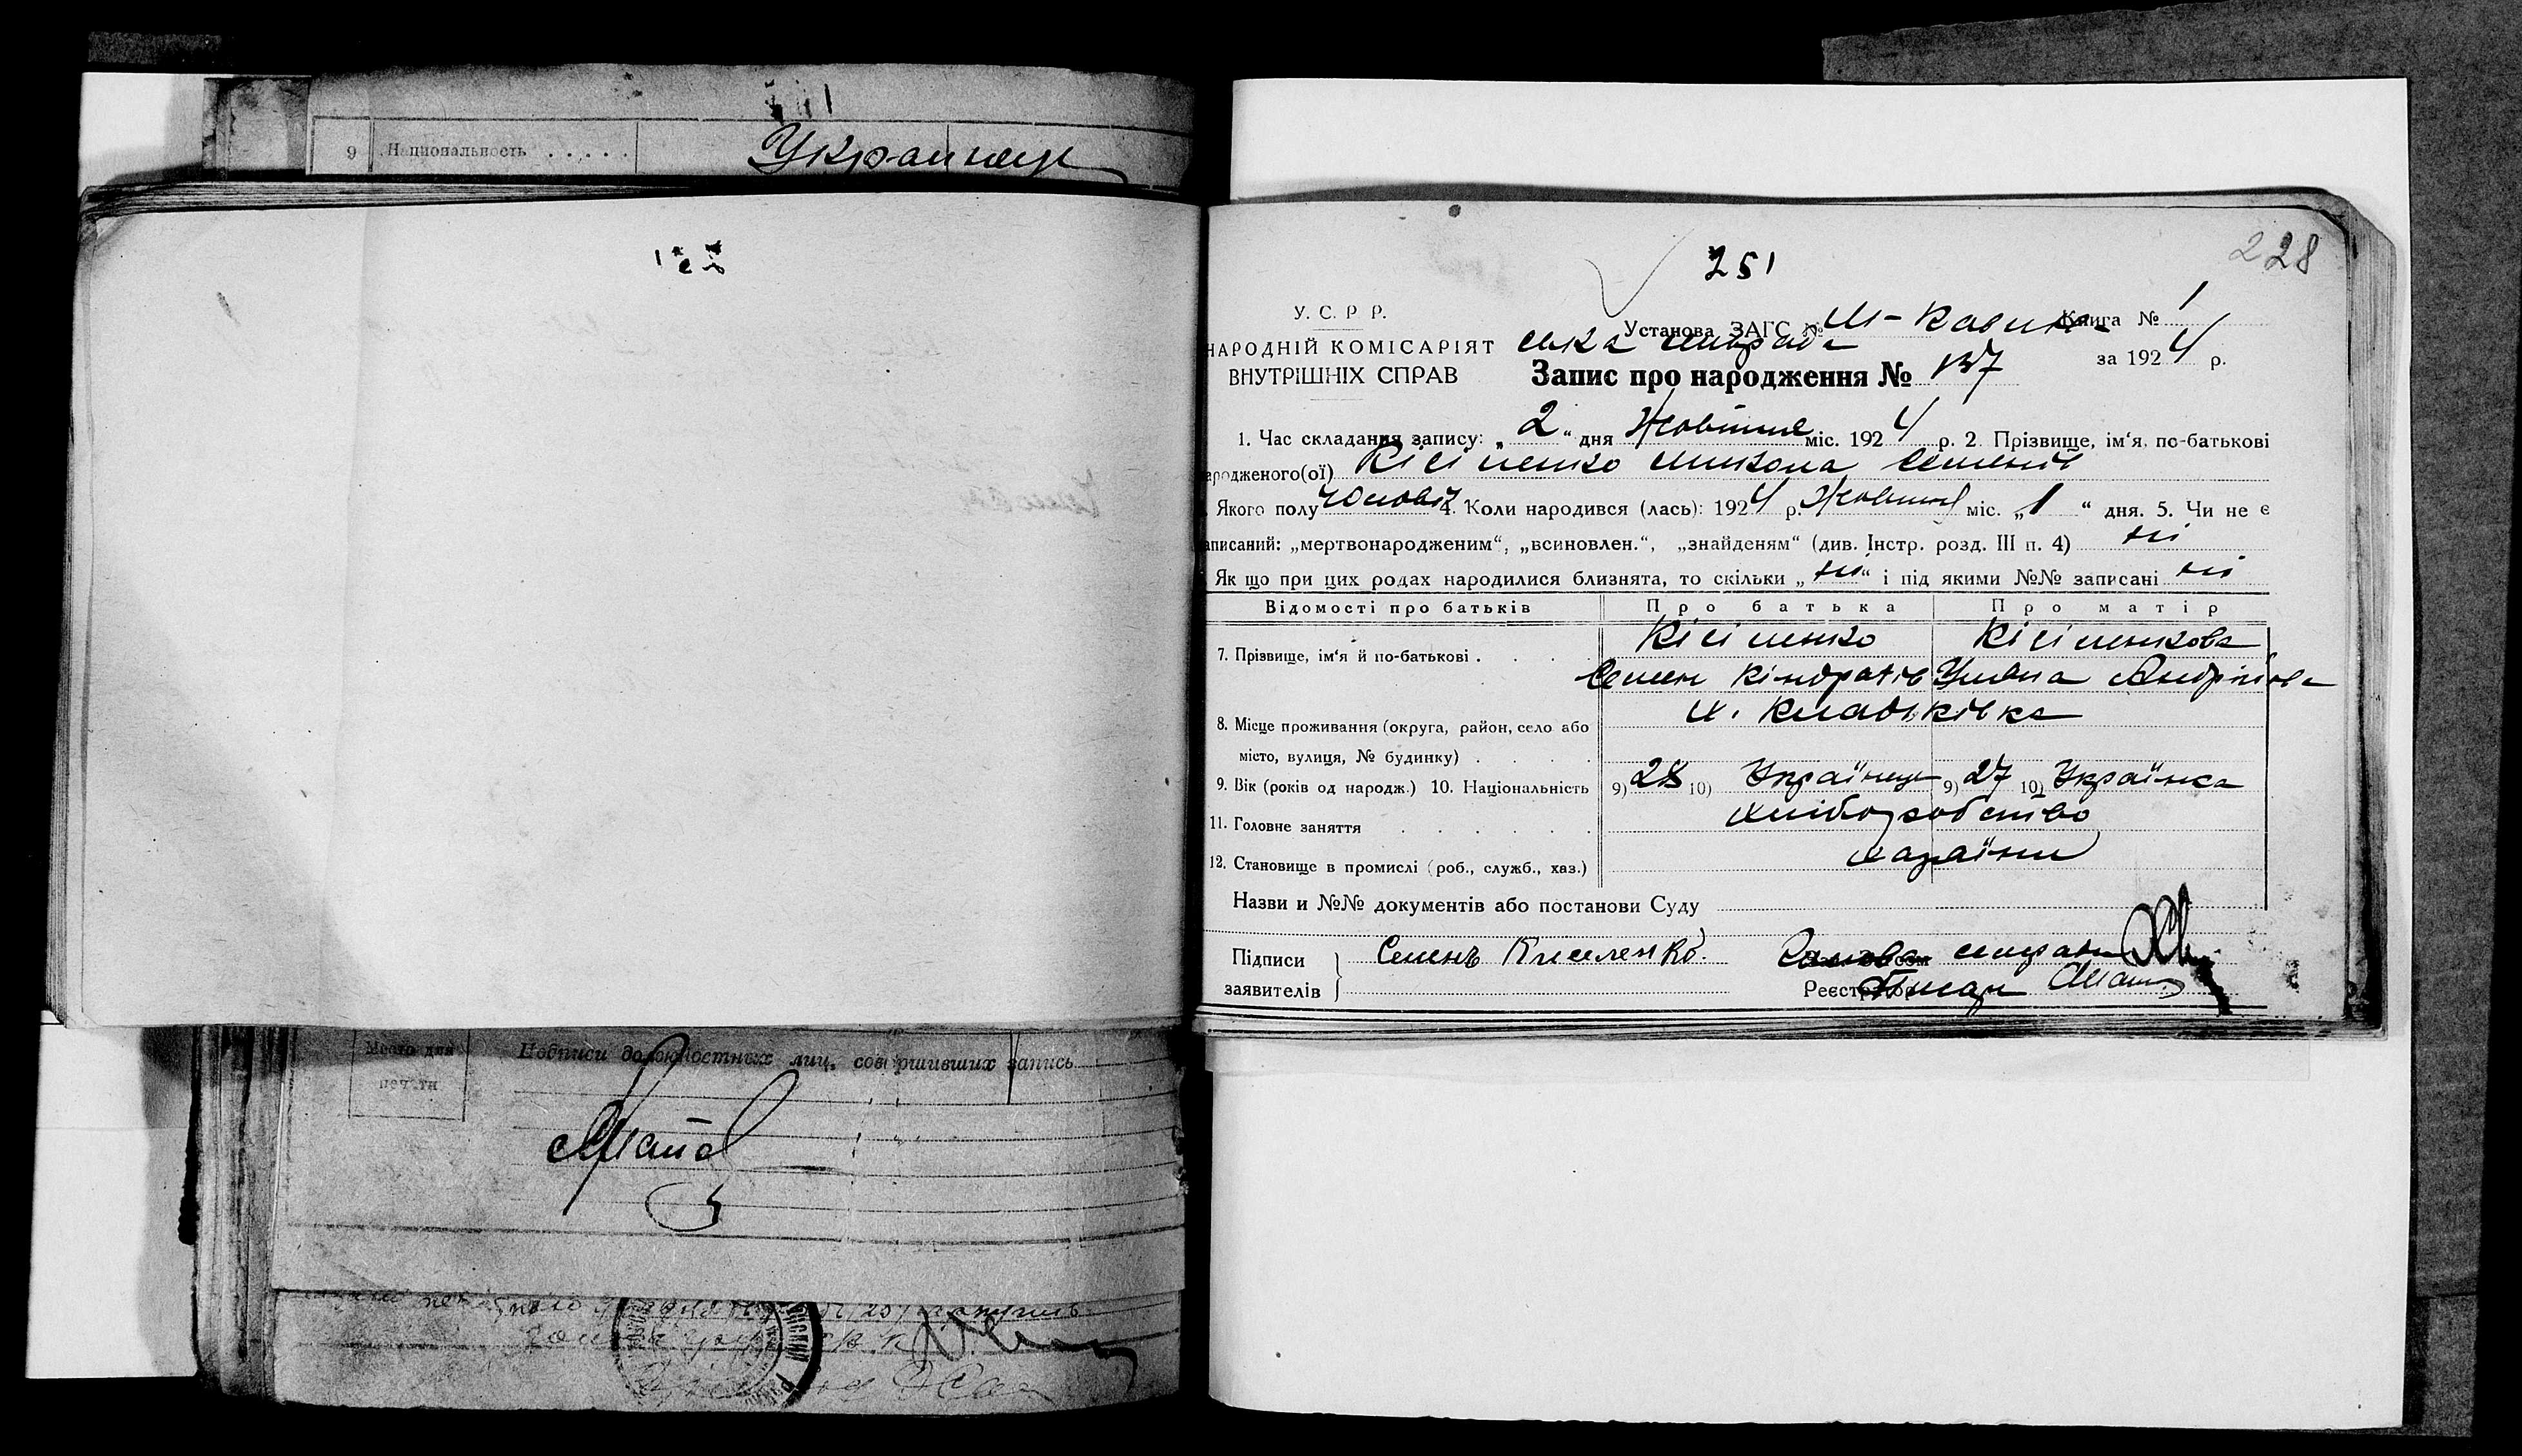 9 Национальность . . . . . Украинец
Место для
печати
Подписи должностных лиц, совершивших запись
228
251
У. С. Р. Р.
НАРОДНІЙ КОМІСАРІЯТ
ВНУТРІШНІХ СПРАВ
Установа ЗАГС № М-Кази
Книга № 1
ська сільрада
за 1924 р.
Запис про народження № 137
1. Час складання запису: „ 2 “ дня Жовтня міс. 1924 р. 2. Прізвище, ім‘я, по-батькові
ародженого(ої) Кісіленко Микола Семенів
Якого полу Чоловіч 4. Коли народився (лась): 1924 р. Жовтня міс. „ 1 “ дня. 5. Чи не є
аписаний: „мертвонародженим“, „всиновлен.“, „знайденям“ (див. Інстр. розд. III п. 4) ні
Як що при цих родах народилися близнята, то скільки „ ні “ і під якими №№ записані ні
Відомості про батьків Про батька Про матір
Кісіленко Кісіленкова
7. Прізвище, ім‘я й по-батькові . . . .
Семен Кіндратів Уляна Андріїова
х. Кладьківка
8. Місце проживання (округа, район, село або
місто, вулиця, № будинку) . . . .
9. Вік (років од народж.) 10. Національність 9) 28 10) Українець 9) 27 10) Українка
11. Головне заняття . . . . . . хліборобство
12. Становище в промислі (роб., служб., хаз.) хазяїни
Назви и №№ документів або постанови Суду
Підписи Семенъ Киселенко. Голова сільради
заявителів Реєстратор Писар